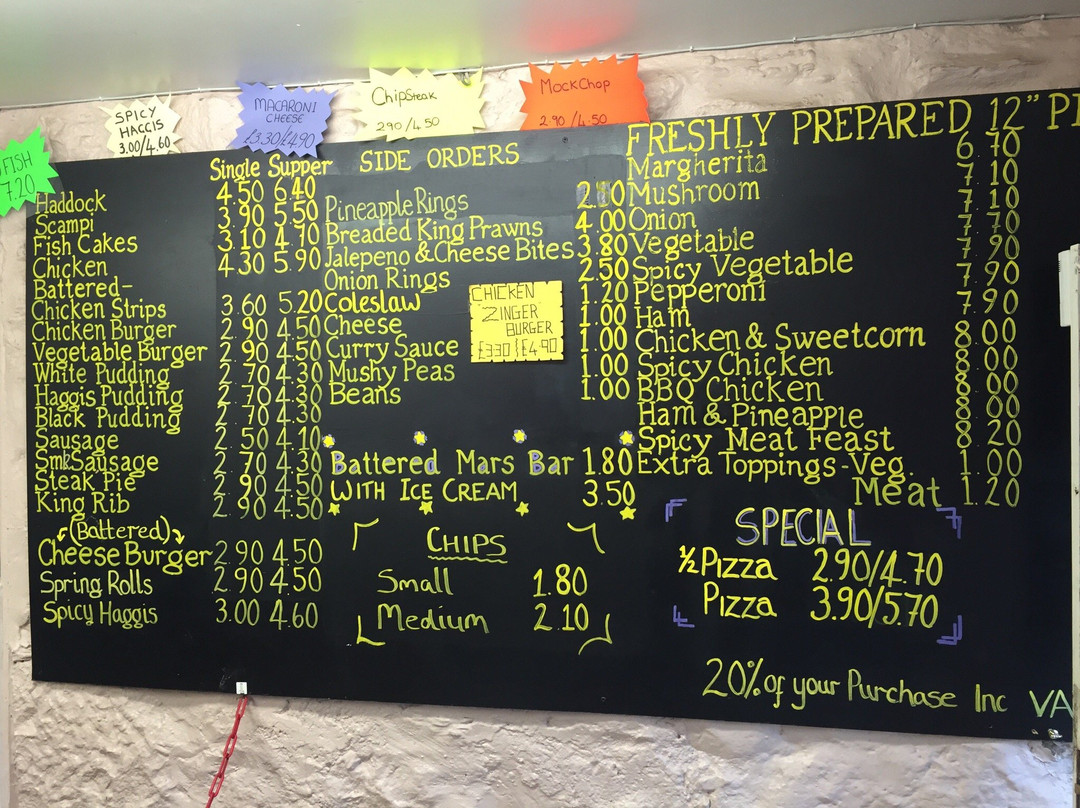 FISH
7.20
SPICY
HAGGIS
3.00/4.60
MACARONI
CHEESE
£3.30/£4.90
ChipSteak
2.90/4.50
MockChop
2.90/4.50
Single Supper
Haddock 4.50 6.40
Scampi 3.90 5.50
Fish Cakes 3.10 4.70
Chicken 4.30 5.90
Battered-
Chicken Strips 3.60 5.20
Chicken Burger 2.90 4.50
Vegetable Burger 2.90 4.50
White Pudding 2.70 4.30
Haggis Pudding 2.70 4.30
Black Pudding 2.70 4.30
Sausage 2.50 4.10
SmkSausage 2.70 4.30
Steak Pie 2.90 4.50
King Rib 2.90 4.50
(Battered)
Cheese Burger 2.90 4.50
Spring Rolls 2.90 4.50
Spicy Haggis 3.00 4.60
SIDE ORDERS
Pineapple Rings
Breaded King Prawns 4.00
Jalepeno & Cheese Bites 3.80
Onion Rings 2.50
Coleslaw 1.20
Cheese 1.00
Curry Sauce 1.00
Mushy Peas 1.00
Beans 1.00
CHICKEN
ZINGER
BURGER
£3.30 £4.90
Battered Mars Bar 1.80
WITH ICE CREAM 3.50
CHIPS
Small 1.80
Medium 2.10
FRESHLY PREPARED 12"
Margherita 6.70
Mushroom 7.10
Onion 7.10
Vegetable 7.70
Spicy Vegetable 7.90
Pepperoni 7.90
Ham 7.90
Chicken & Sweetcorn 8.00
Spicy Chicken 8.00
BBQ Chicken 8.00
Ham & Pineapple 8.00
Spicy Meat Feast 8.20
Extra Toppings-Veg. 1.00
Meat 1.20
SPECIAL
½ Pizza 2.90/4.70
Pizza 3.90/5.70
20% of your Purchase Inc VA